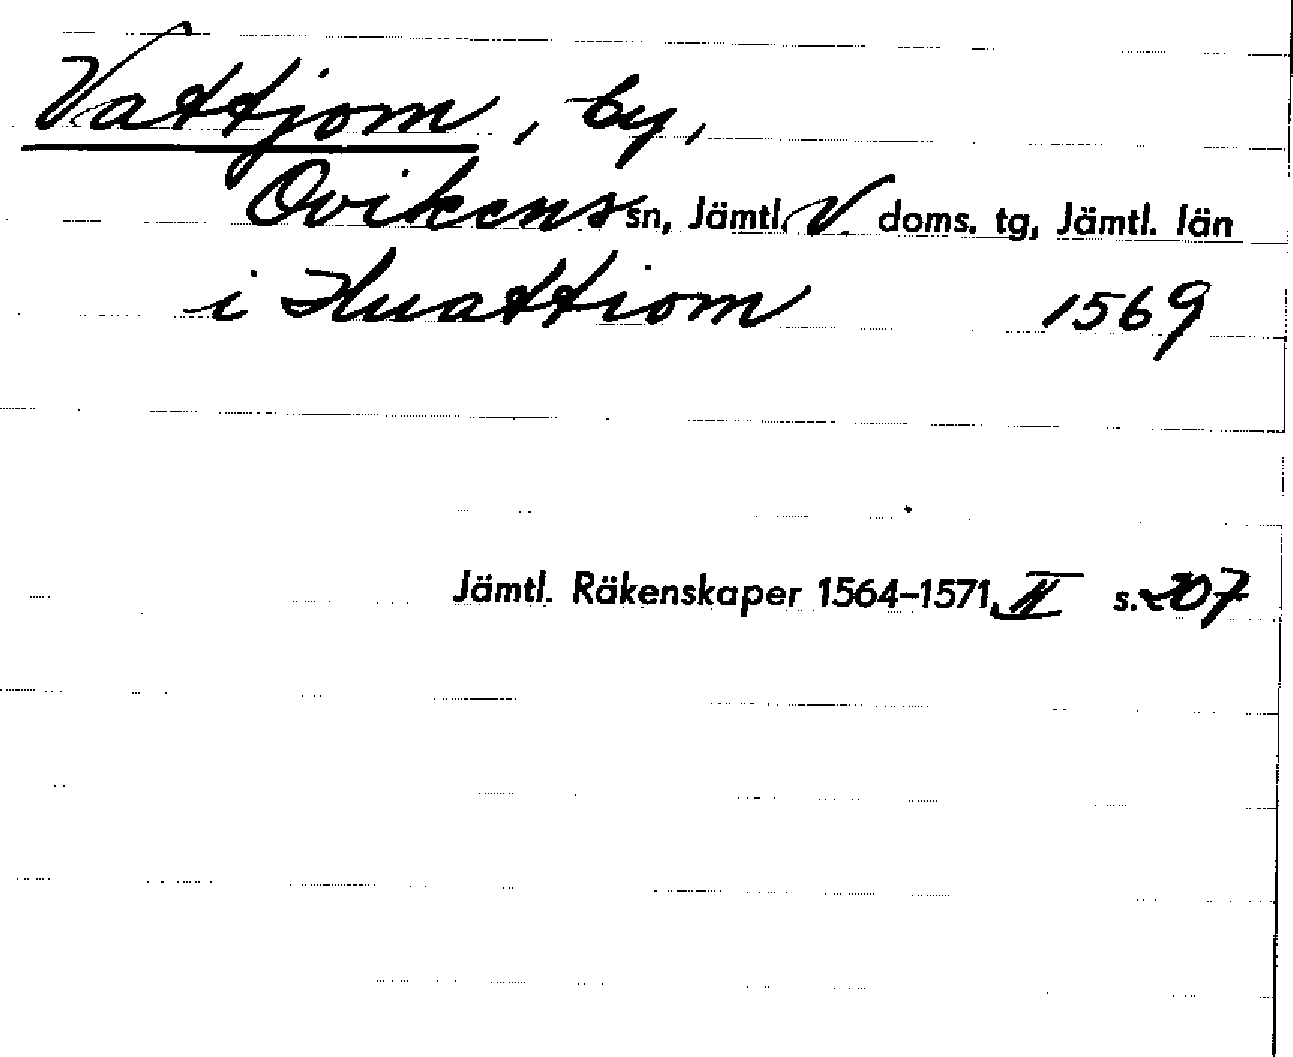 Vattjom, by,
Ovikens sn, Jämtl. V. doms. tg, Jämtl. län
i Huattiom 1569
Jämtl. Räkenskaper 1564–1571, II s. 207